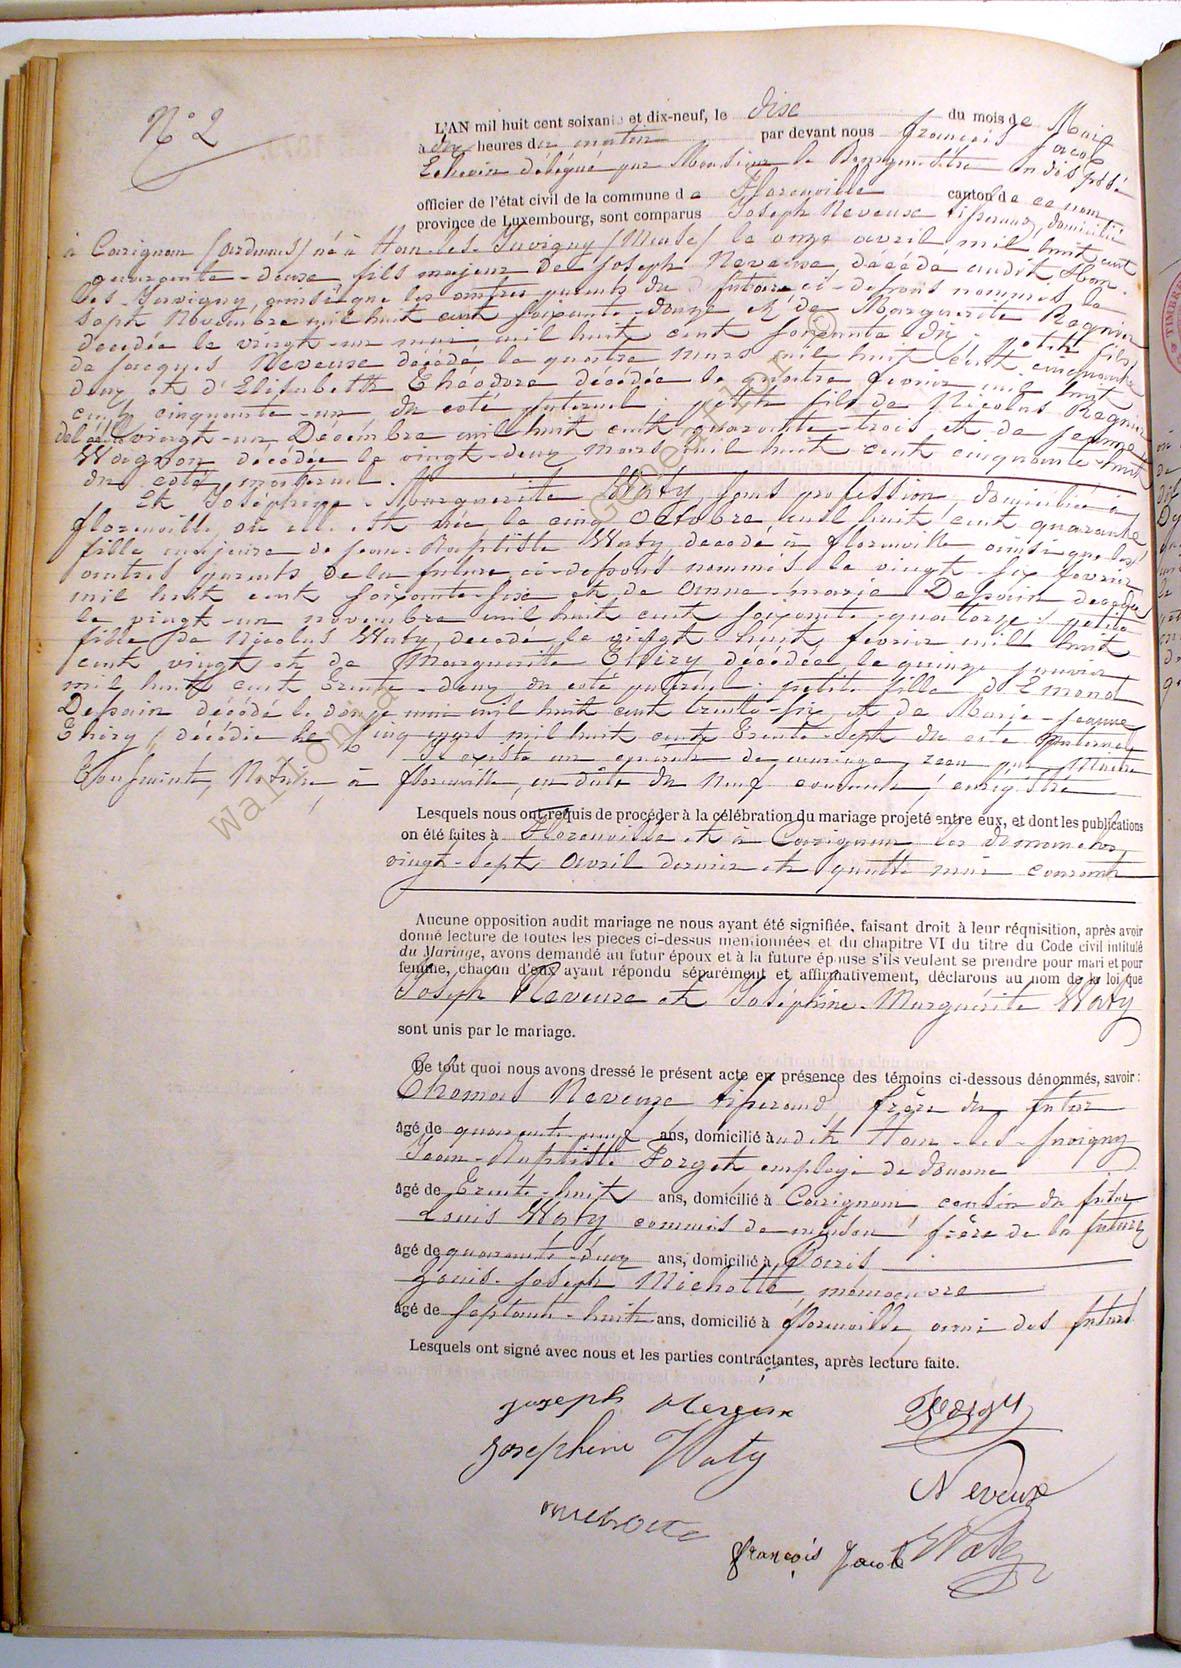 N° 2
L'AN mil huit cent soixante et dix-neuf, le dix du mois de Mai
à dix heures du matin par devant nous François Jacob
Echevin délégué par Monsieur le Bourgmestre
officier de l'état civil de la commune de Florenville canton de ce nom
province de Luxembourg, sont comparus Joseph Neveux tisserand, domicilié
à Carignan (Ardennes) né à Han-les-Juvigny (Meuse) le onze avril mil huit cent
quarante-deux, fils majeur de Joseph Neveux décédé audit Han-
les-Juvigny, ainsi que les autres parents du futur ci-dessous nommés le
sept Novembre mil huit cent soixante-douze et de Marguerite Regnier
décédée le vingt-un mai mil huit cent soixante dix petit fils
de Jacques Neveux décédé le quatre mars mil huit cent cinquante
deux et d'Elisabeth Théodore décédée le quatre février mil huit
cent cinquante-un du coté paternel; petit fils de Nicolas Regnier
décédé le vingt-un Décembre mil huit cent quarante-trois et de Jeanne
Wagnon décédée le vingt-deux mars mil huit cent cinquante-huit
du coté maternel.
Et Joséphine-Marguerite Waty, sans profession, domiciliée à
florenville, où elle est née, le cinq Octobre mil huit cent quarante
fille majeure de Jean-Baptiste Waty, décédé à florenville ainsi que les
autres parents de la future ci-dessous nommés le vingt-six février
mil huit cent soixante-six et de Anne-Marie Depain décédée
le vingt-un novembre mil huit cent soixante-quatorze; petite
fille de Nicolas Waty, décédé le vingt huit février mil huit
cent vingt et de Marguerite Thiry décédée, le quinze janvier
mil huit cent trente-deux du coté paternel; petite fille d'Emond
Depain décédé le douze mai mil huit cent trente-six et de Marie-Jeanne
Thiry, décédée le cinq mars mil huit cent trente-sept du coté maternel
Il existe un contrat de mariage reçu par Maître
Notaire à florenville, en date du neuf courant, enregistré
Lesquels nous ont requis de procéder à la célébration du mariage projeté entre eux, et dont les publications
on été faites à Florenville et à Carignan les dimanches
vingt-sept Avril dernier et quatre mai courant
Aucune opposition audit mariage ne nous ayant été signifiée, faisant droit à leur réquisition, après avoir
donné lecture de toutes les pièces ci-dessus mentionnées et du chapitre VI du titre du Code civil intitulé
du Mariage, avons demandé au futur époux et à la future épouse s'ils veulent se prendre pour mari et pour
femme, chacun d'eux ayant répondu séparément et affirmativement, déclarons au nom de la loi que
Joseph Neveux et Joséphine-Marguerite Waty
sont unis par le mariage.
De tout quoi nous avons dressé le présent acte en présence des témoins ci-dessous dénommés, savoir:
Thomas Neveux tisserand, frère du futur
âgé de quarante-neuf ans, domicilié audit Han-les-Juvigny
Jean-Baptiste Forget employé de douane
âgé de Trente-huit ans, domicilié à Carignan cousin du futur
Louis Waty commis de frère de la future
âgé de quarante-deux ans, domicilié à Paris
Louis-Joseph Michotte, manoeuvre
âgé de septante-huit ans, domicilié à florenville, ami des futurs
Lesquels ont signé avec nous et les parties contractantes, après lecture faite.
joseph Neveux Forget
josephine Waty
Neveux
michotte
françois Jacob Waty